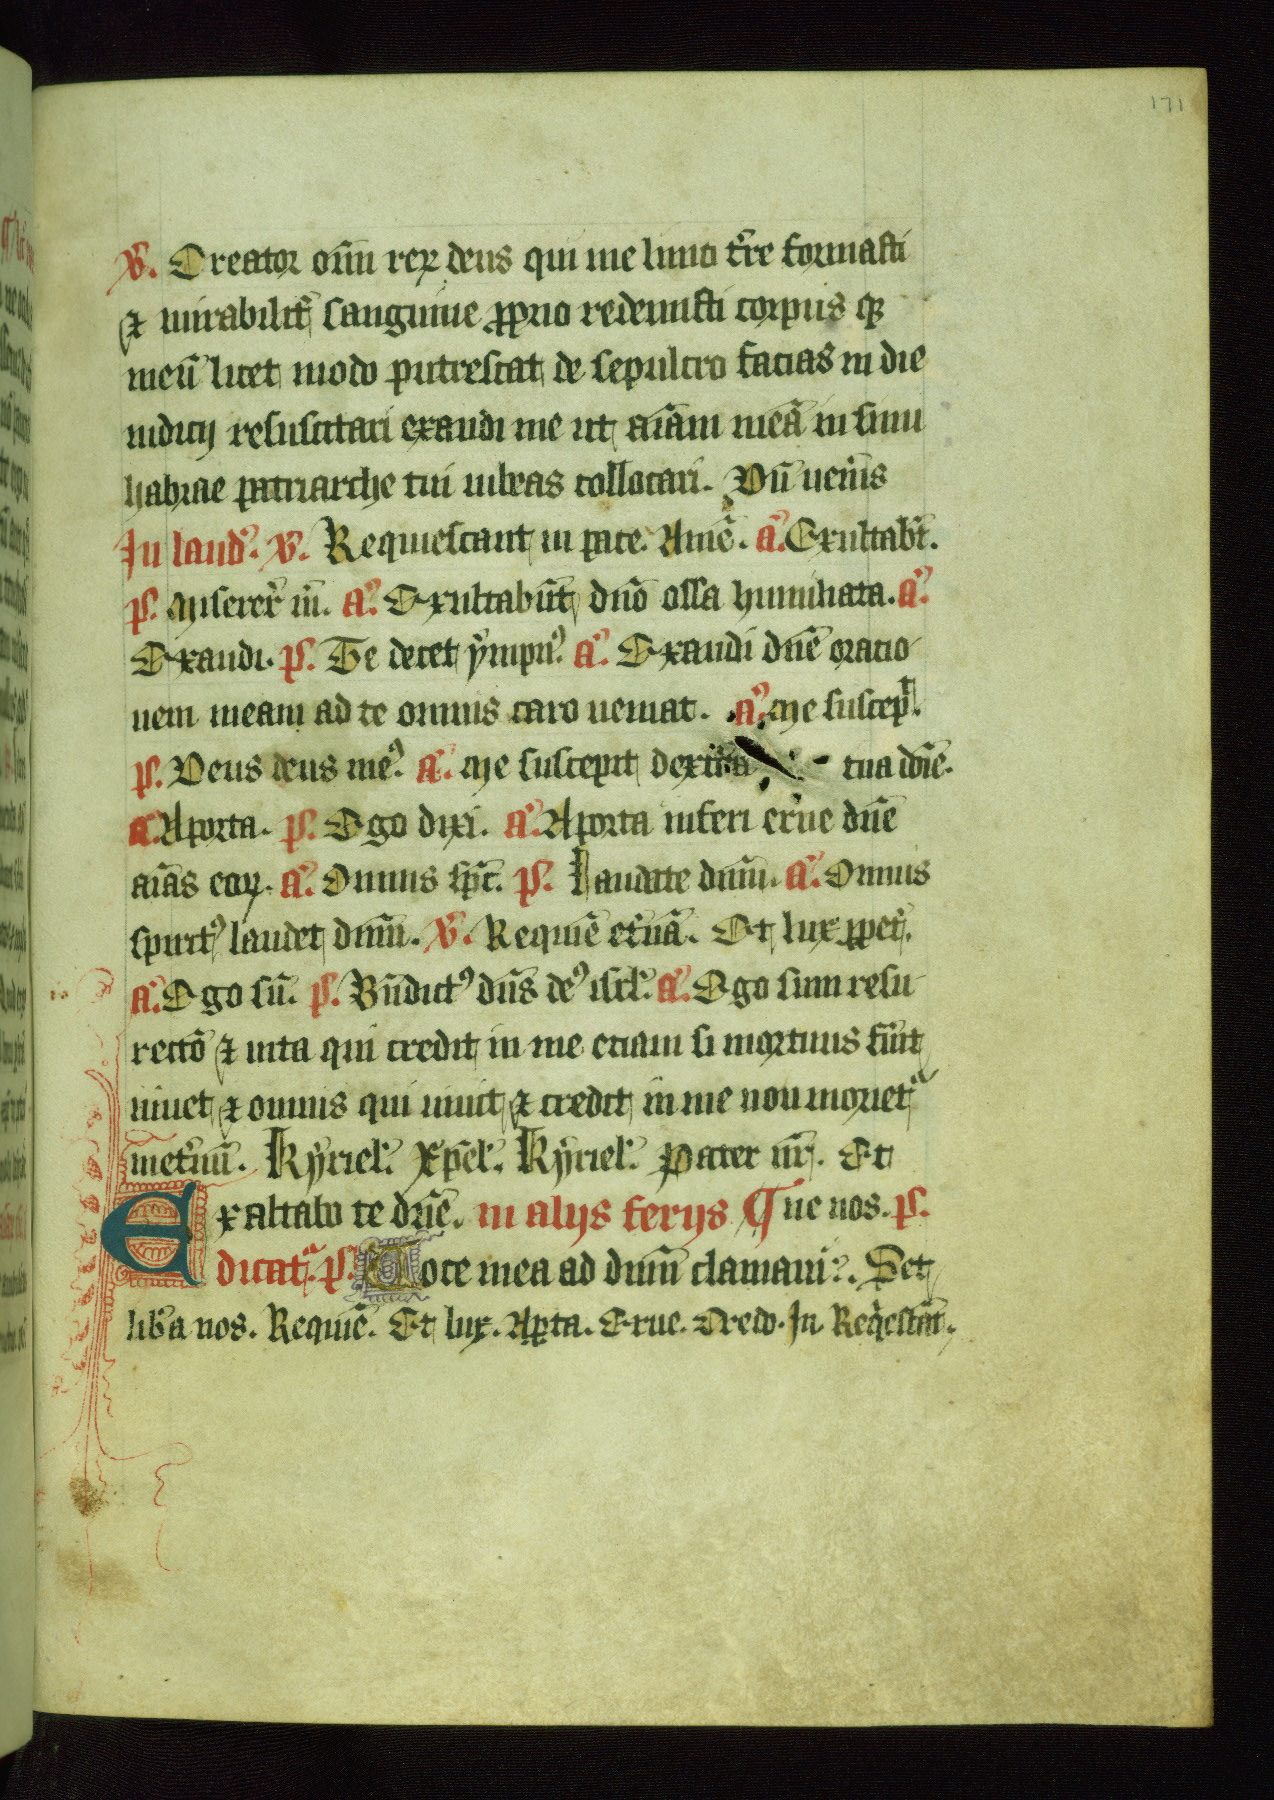 171
v̄. Creator om̄ium rerum deus qui me limo t̄re formasti
et mirabilit̄ sanguine proprio redemisti corpus q̄
meū licet modo putrescat de sepulcro facias in die
iudicij resuscitari exaudi me ut aīam meā in sinu
habrae patriarche tui iubeas collocari. Dū uen̄is
In laud̄. v̄. Requiescant in pace. Amē. a᷒. Exultab̄t.
p̄s. Miserer̄ m̄. a᷒. Exultabūt dn̄o ossa humiliata. a᷒.
Exaudi. p̄s. Te decet ympn᷒. a᷒. Exaudi dn̄e oratio
nem meam ad te omnis caro ueniat. a᷒. Me suscep̄.
p̄s. Deus deus me᷒. a᷒. Me suscepit dextera tua dn̄e.
a᷒. Aporta. p̄s. Ego dixi. a᷒. Aporta inferi erue dn̄e
aīas eoꝝ. a᷒. Omnis sp̄c. p̄s. Laudate dn̄m. a᷒. Omnis
spirit᷒ laudet dn̄m. v̄. Requiē et̄nā. Et lux ꝑpet̄.
a᷒. Ego sū. p̄s. Bn̄dict᷒ dn̄s de᷒ isrl̄. a᷒. Ego sum resu
rectō et uita qui credit in me etiam si mortuus fūit
uiuet et omnis qui uiuit et credit in me non moriet᷑
inet̄nū. Kyriel̄. Xp̄el̄. Kyriel̄. Pater nr̄. Et
Exaltabo te dn̄e. in alijs ferijs Que nos. p̄s.
dicat᷑. p̄s. Uoce mea ad dn̄m clamaui. Set
lib̄a nos. Requiē. Et lux. Aꝑta. Erue. Credo. In. Req̄escāt.